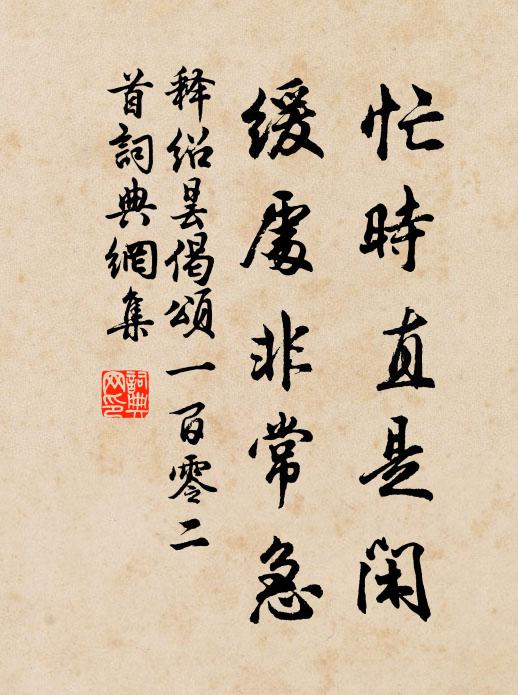 忙時直是閑
緩處非常急
释紹曇偈頌一百零二
首詞典網集
詞典
网印